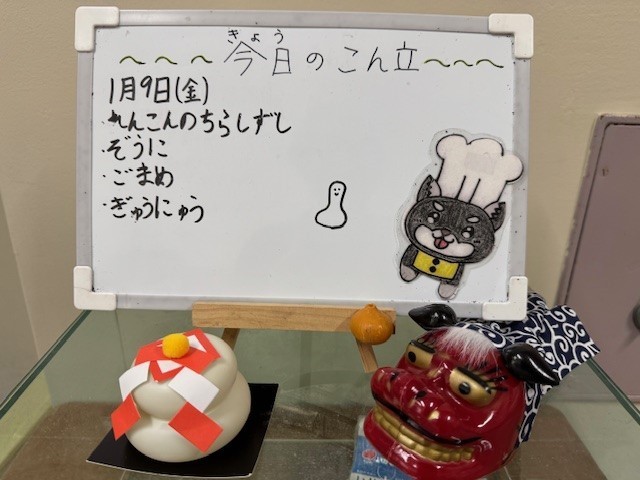 きょう
～～～今日のこん立～～～
1月9日(金)
・れんこんのちらしずし
・ぞうに
・ごまめ
・ぎゅうにゅう